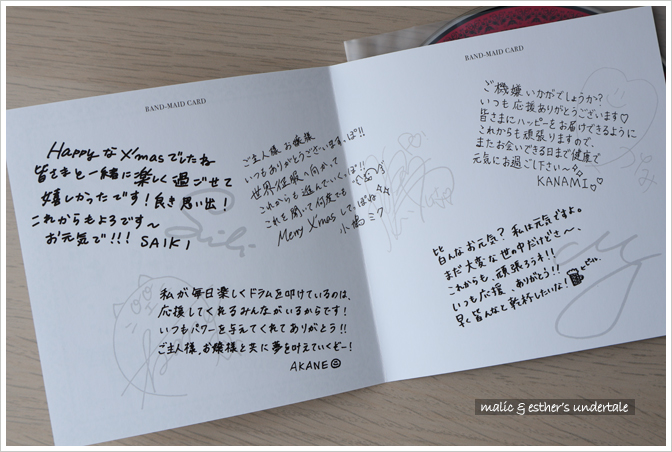 BAND-MAID CARD
HappyなX'masでしたね
皆さまと一緒に楽しく過ごせて
嬉しかったです！良き思い出！
これからもよろです〜
お元気で!!! SAIKI
ご主人様、お嬢様
いつもありがとうございます、っぽ!!
世界征服へ向かって
これからも進んでいくっぽ!!
これを聞いて何度でも
Merry Xmasしてっぽね☆
小鳩ミク
私が毎日楽しくドラムを叩けているのは、
応援してくれるみんながいるからです！
いつもパワーを与えてくれてありがとう!!
ご主人様、お嬢様と共に夢を叶えていくぞー！
AKANE
BAND-MAID CARD
ご機嫌いかがでしょうか?
いつも応援ありがとうございます♡
皆さまにハッピーをお届けできるように
これからも頑張りますので、
またお会いできる日まで健康で
元気にお過ごし下さい〜
KANAMI
皆んなお元気？私は元気ですよ。
まだ大変な世の中だけどさ〜、
これからも、頑張ろうネ!!
いつも応援、ありがとう!!
早く皆んなと乾杯したいな！
malic & esther's undertale